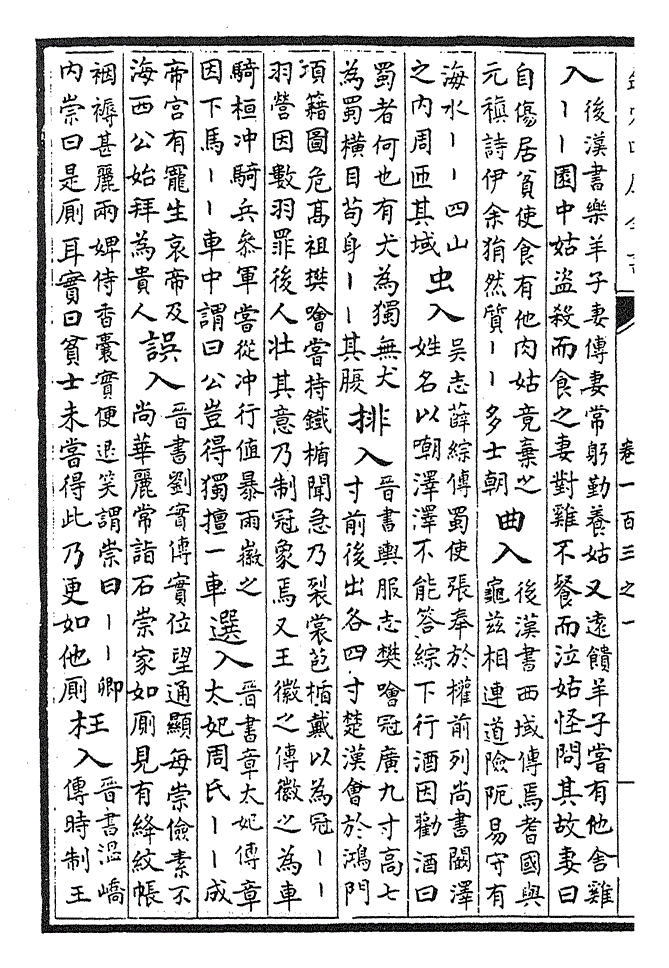 卷一百三之一
入
後漢書樂羊子妻傳妻常躬勤養姑又遠饋羊子嘗有他舍雞
丨丨園中姑盜殺而食之妻對雞不餐而泣姑怪問其故妻曰
自傷居貧使食有他肉姑竟棄之
元稹詩伊余狷然質丨丨多士朝
曲入
後漢書西域傳焉耆國與
龜兹相連道險阨易守有
海水丨丨四山
之内周匝其域
虫入
吳志薛綜傳蜀使張奉於權前列尚書闞澤
姓名以嘲澤澤不能答綜下行酒因勸酒曰
蜀者何也有犬為獨無犬
為蜀橫目苟身丨丨其腹
排入
晉書輿服志樊噲冠廣九寸高七
寸前後出各四寸楚漢會於鴻門
項籍圖危高祖樊噲嘗持鐵楯聞急乃裂裳苞楯戴以為冠丨丨
羽營因數羽罪後人壯其意乃制冠象焉又王徽之傳徽之為車
騎桓冲騎兵參軍嘗從冲行值暴雨徽之
因下馬丨丨車中謂曰公豈得獨擅一車
選入
晉書章太妃傳章
太妃周氏丨丨成
帝宫有寵生哀帝及
海西公始拜為貴人
誤入
晉書劉實傳實位望通顯每崇儉素不
尚華麗常詣石崇家如厠見有絳紋帳
裀褥甚麗兩婢侍香囊實便退笑謂崇曰丨丨卿
内崇曰是厠耳實曰貧士未嘗得此乃更如他厠
枉入
晉書溫嶠
傳時制王